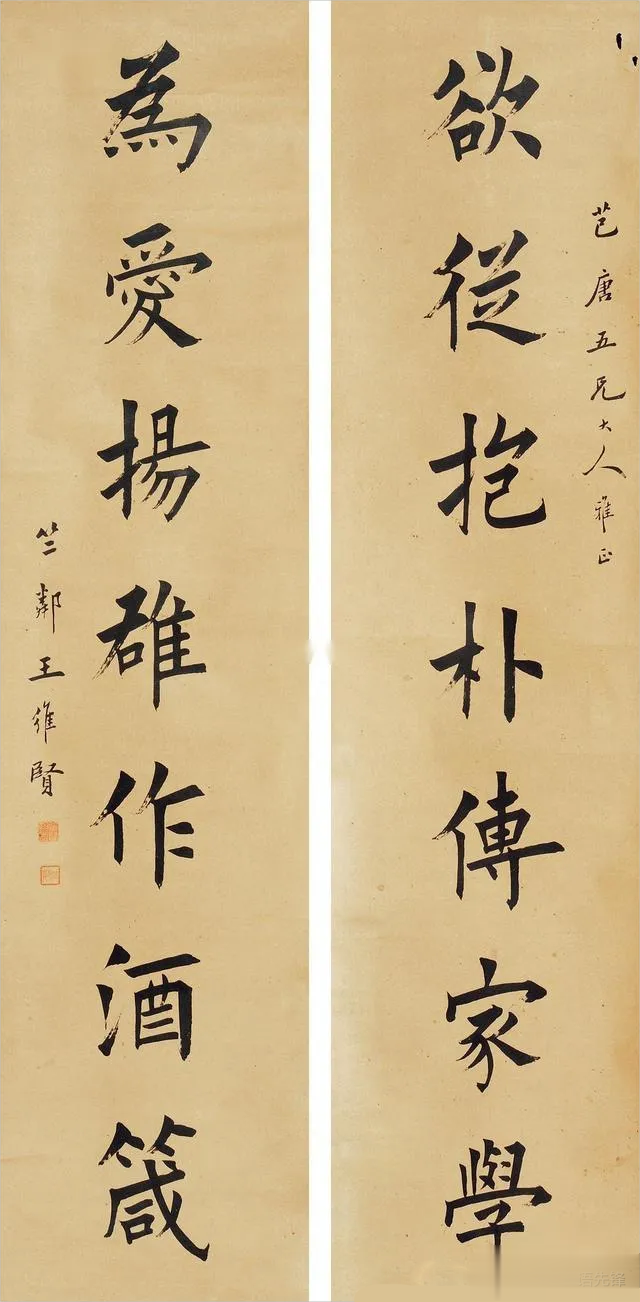 芑唐五兄大人雅正
欲從抱朴傳家學
為愛揚雄作酒箴
竺鄰王維賢